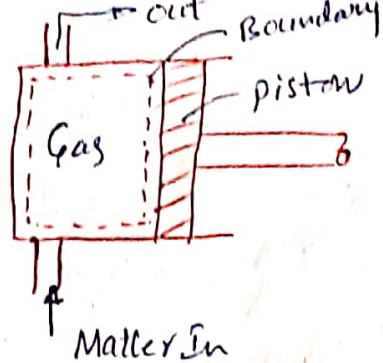 out
Boundary
piston
Gas
Matter In